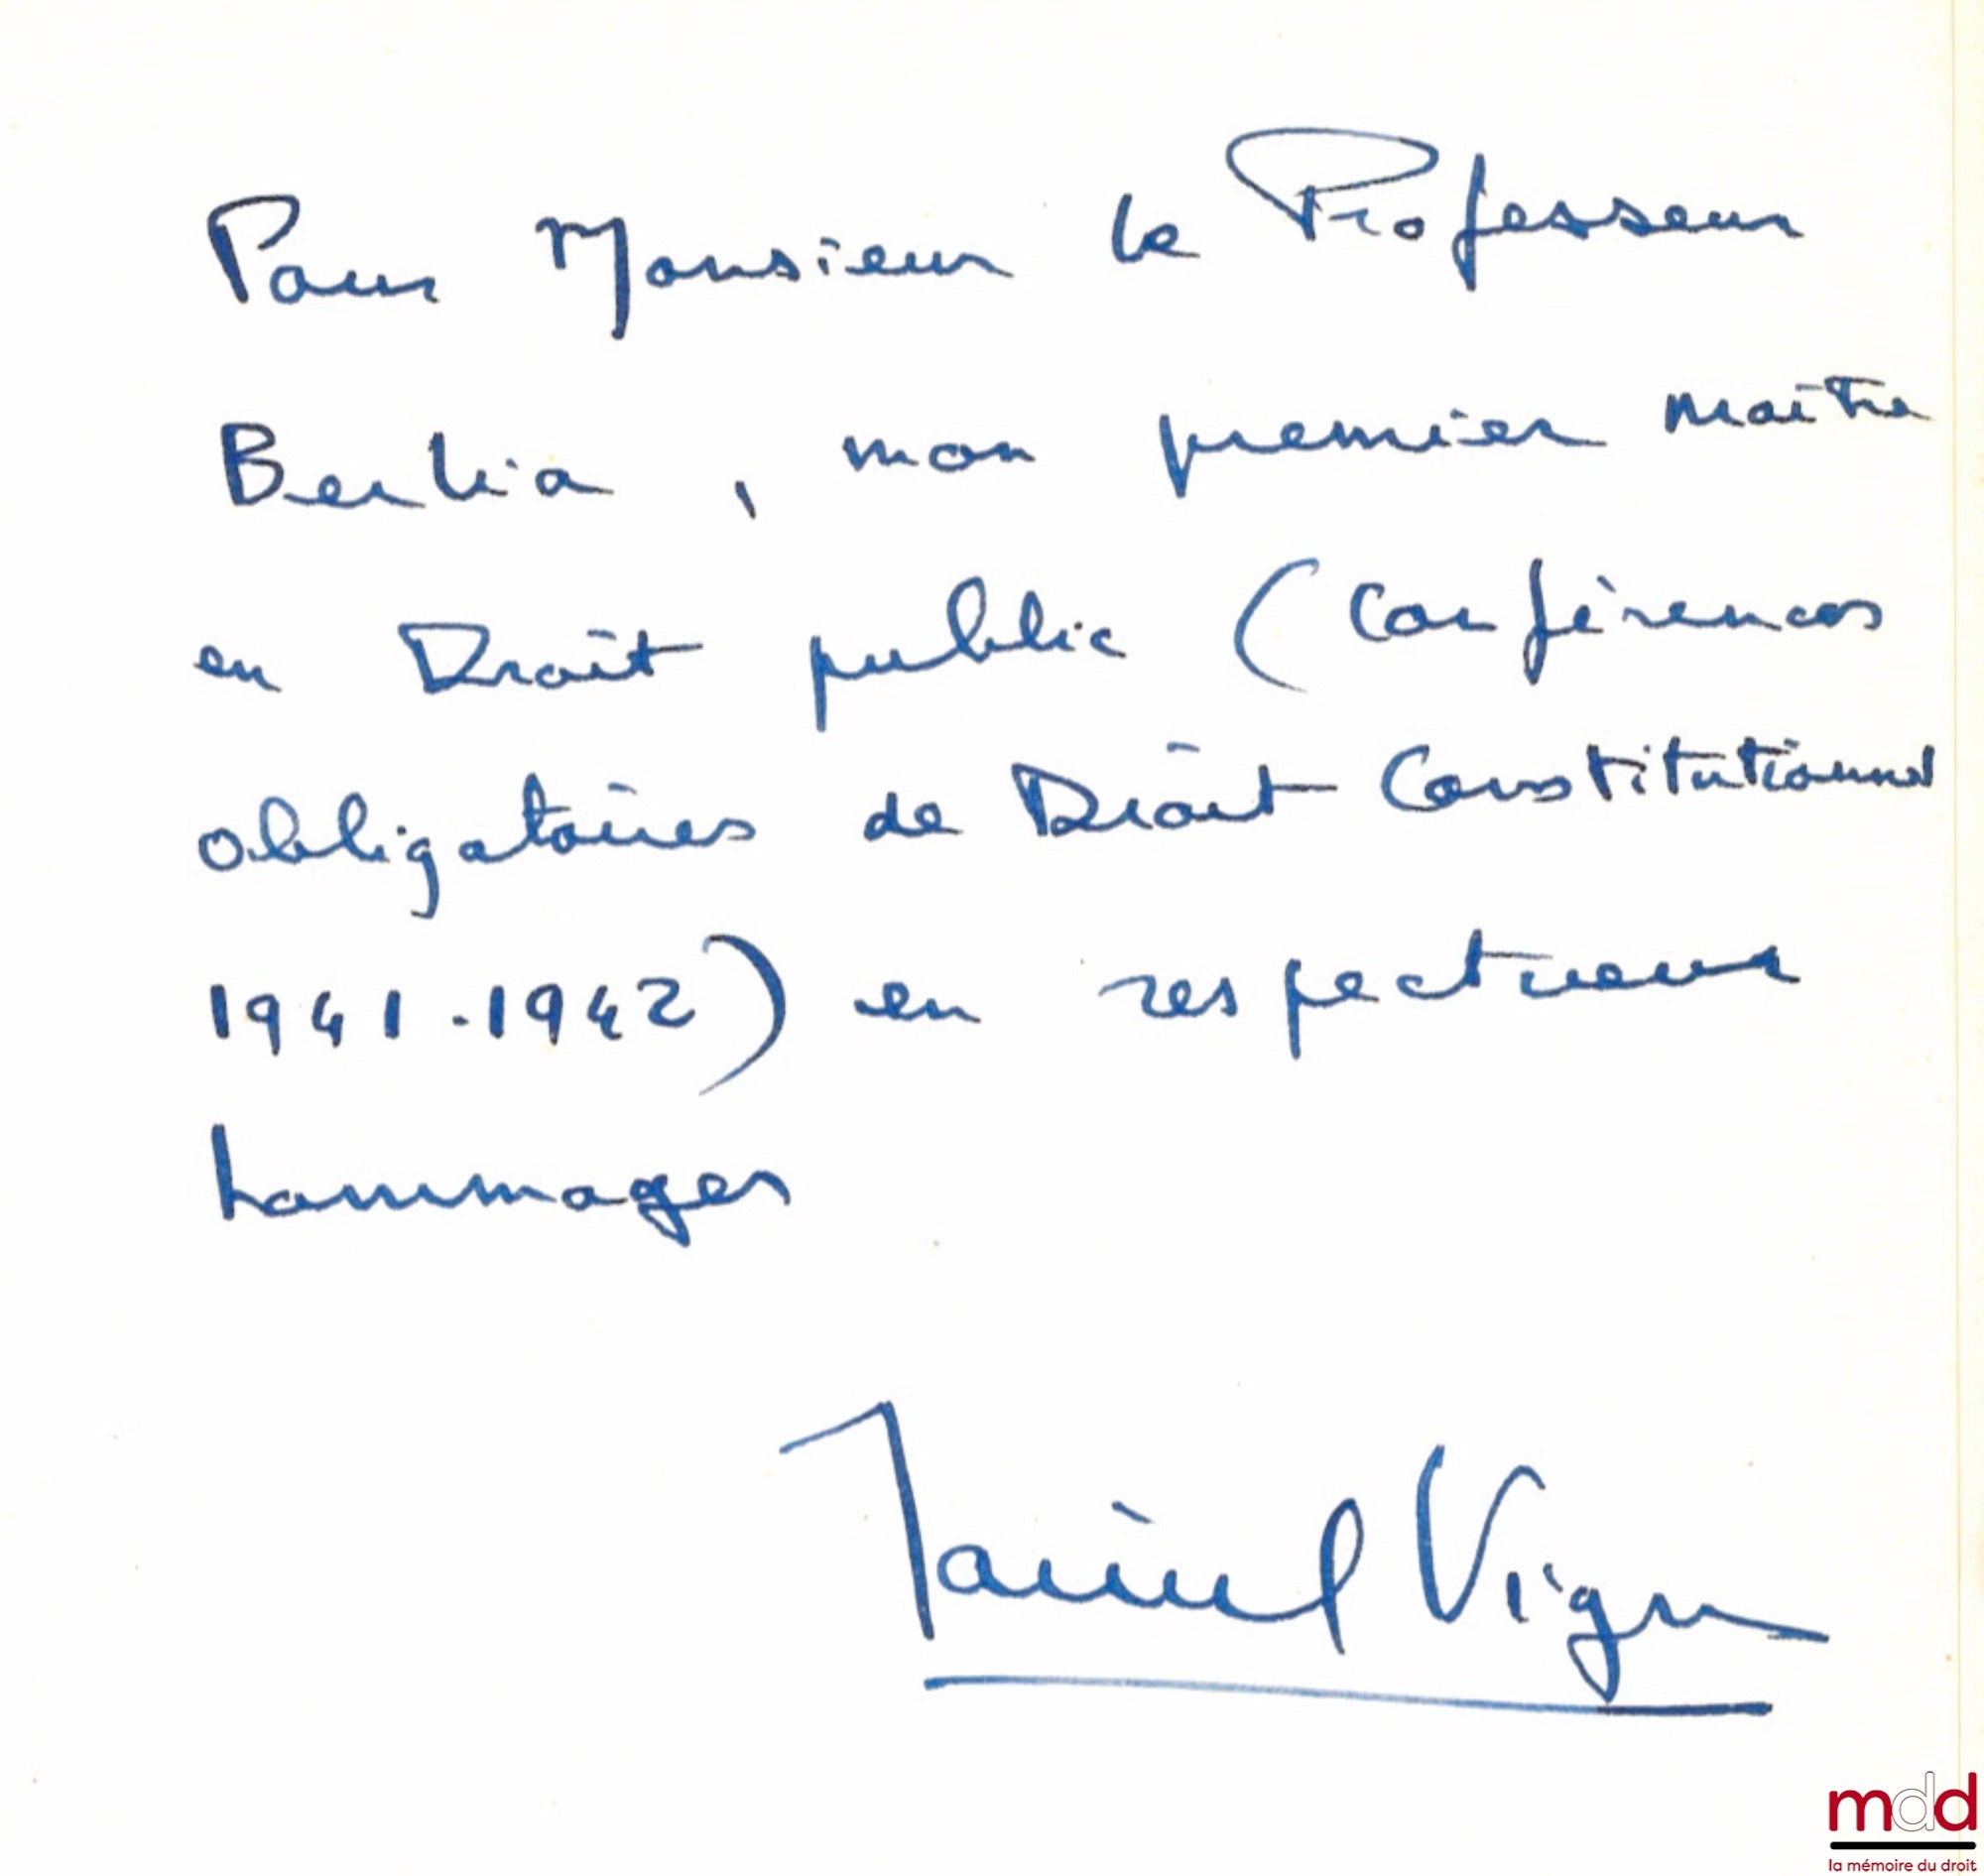 Pour Monsieur le Professeur
Berlia, mon premier maître
en Droit public (Conférences
obligatoires de Droit Constitutionnel
1941-1942) en respectueux
hommages
Daniel Vignes
mdd
la mémoire du droit